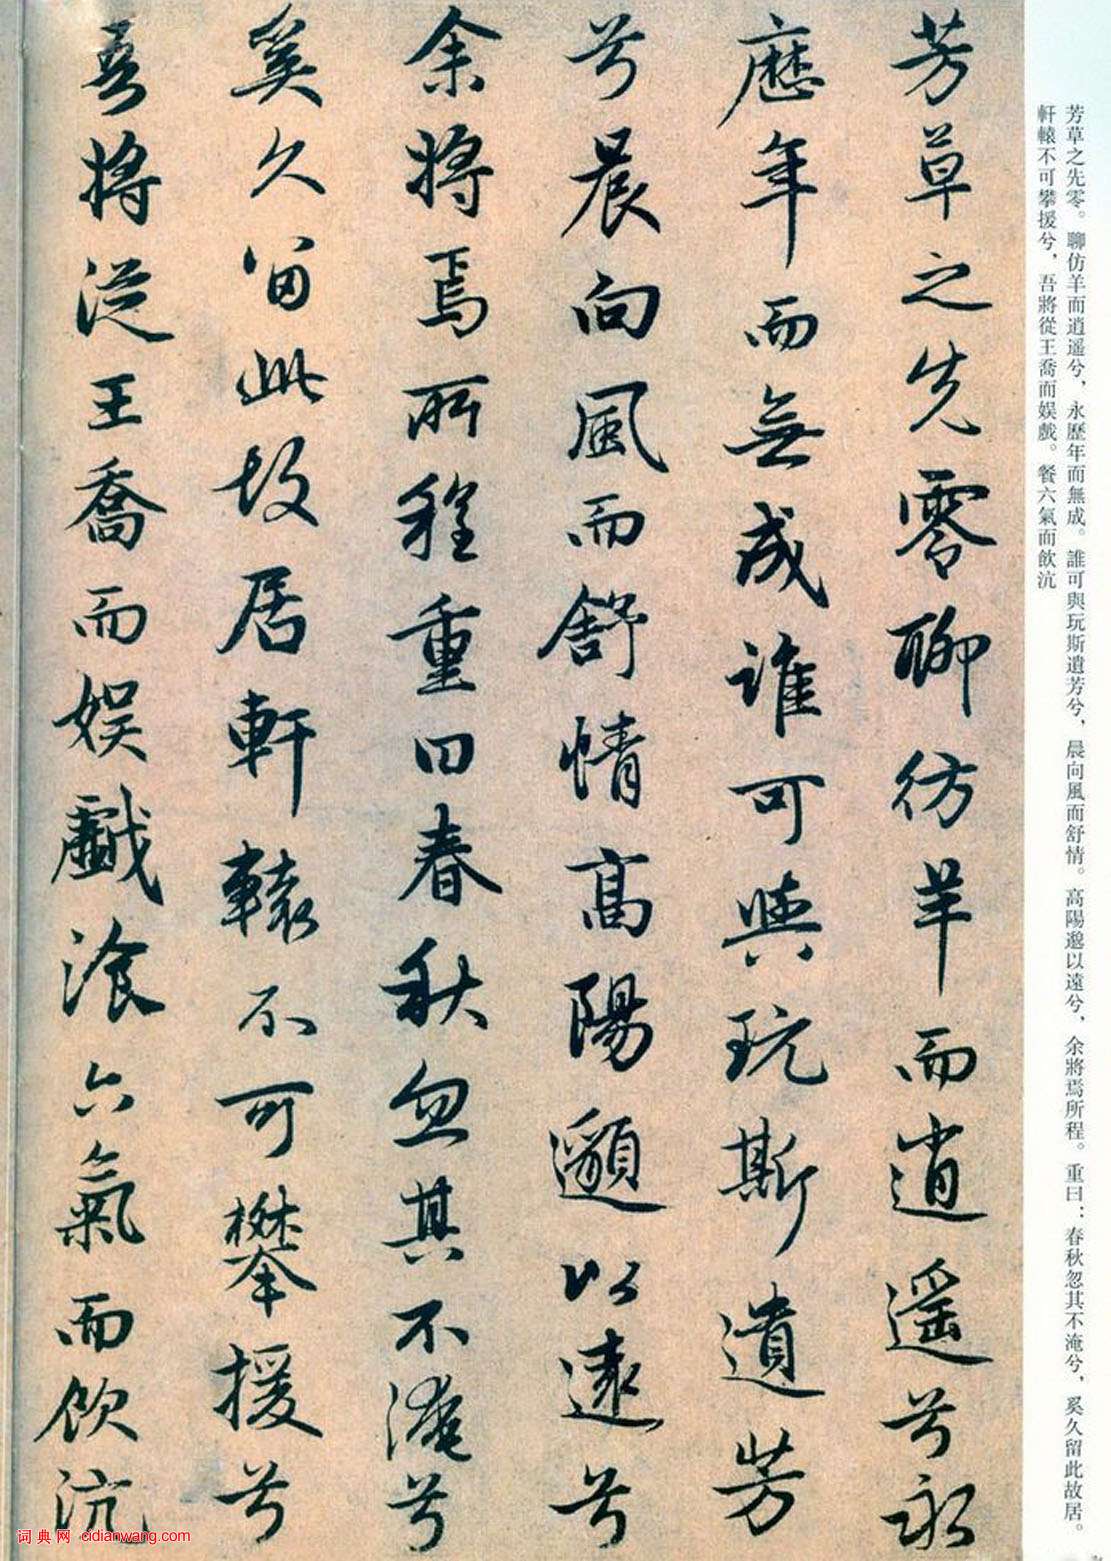 芳草之先零。聊仿羊而逍遥兮，永歷年而無成。誰可與玩斯遺芳兮，晨向風而舒情。高陽邈以遠兮，余將焉所程。重曰：春秋忽其不淹兮，奚久留此故居。
軒轅不可攀援兮，吾將從王喬而娱戲。餐六氣而飲沆
芳草之先零聊彷羊而逍遥兮永
歷年而無成誰可與玩斯遺芳
兮晨向風而舒情高陽邈以遠兮
余將焉所程重曰春秋忽其不淹兮
奚久留此故居軒轅不可攀援兮
吾將從王喬而娱戲湌六氣而飲沆
词典网 cidianwang.com